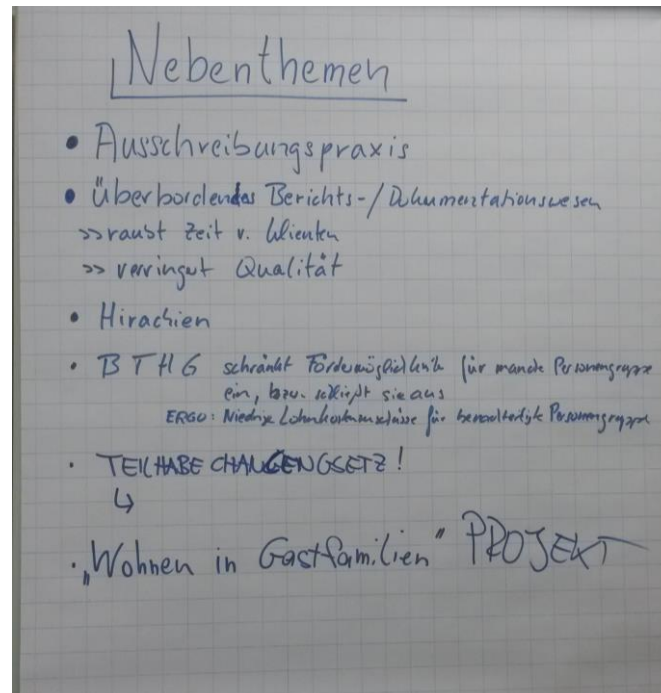 Nebenthemen
• Ausschreibungspraxis
• überbordendes Berichts-/Dokumentationswesen
>> raubt Zeit v. Klienten
>> verringert Qualität
• Hirachien
• BTHG schränkt Fördermöglichkeit für manche Personengruppe
ein, bzw. schließt sie aus
ERGO: Niedrige Lohnkostenzuschüsse für benachteiligte Personengruppe
• TEILHABE CHANCENGSETZ!
↳
• „Wohnen in Gastfamilien" PROJEKT